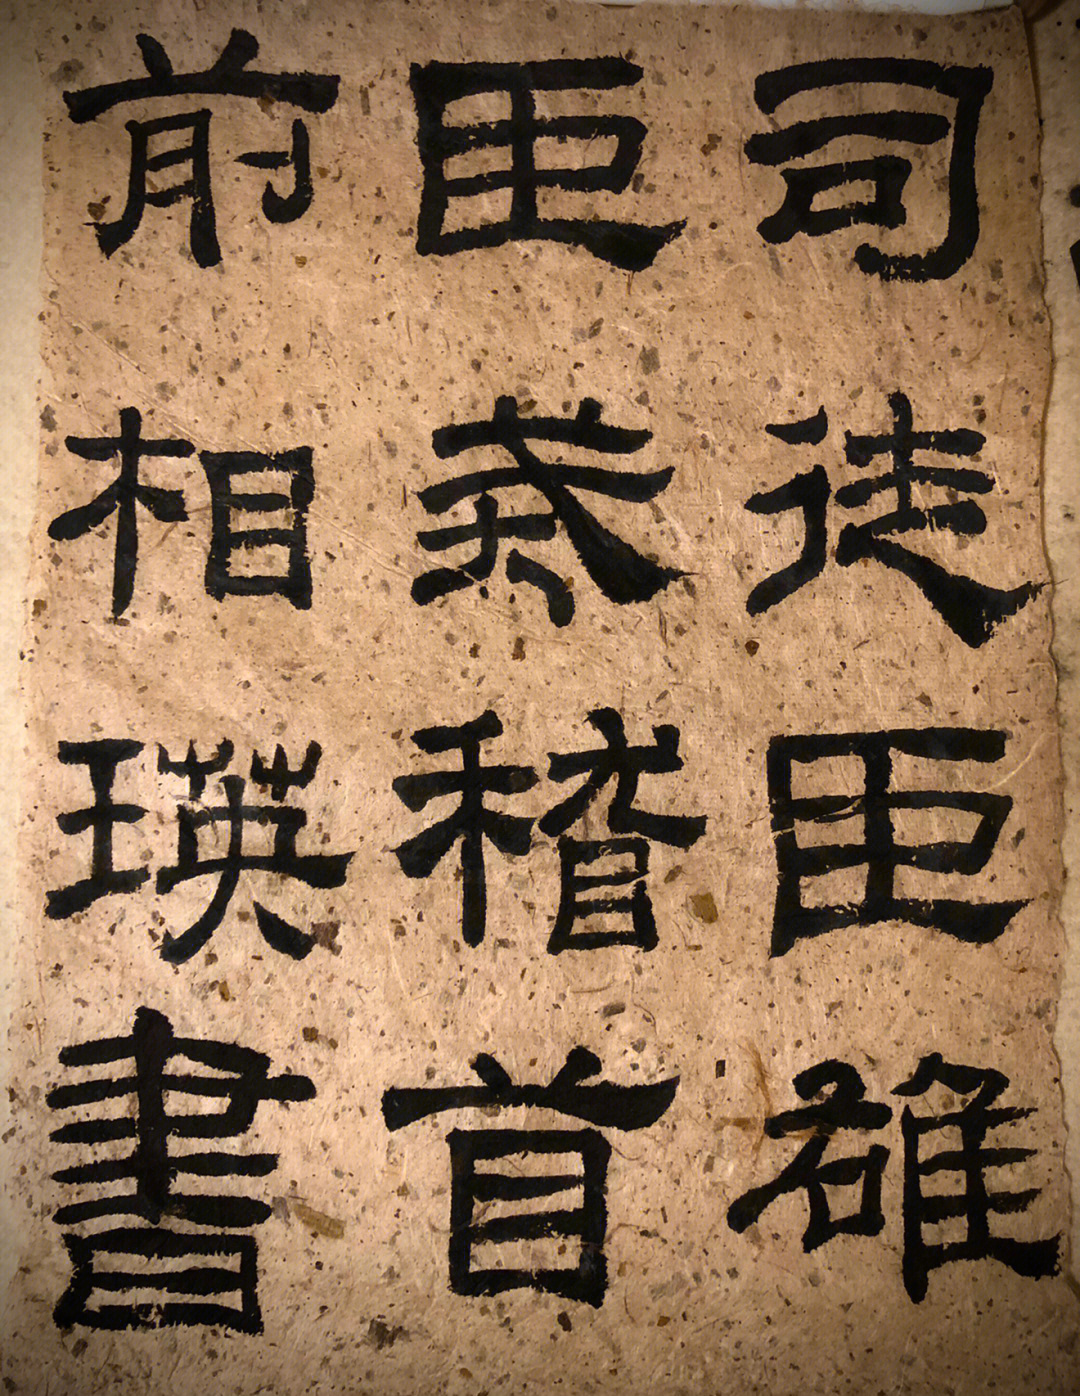 司徒臣雄
臣戒稽首
前相瑛書